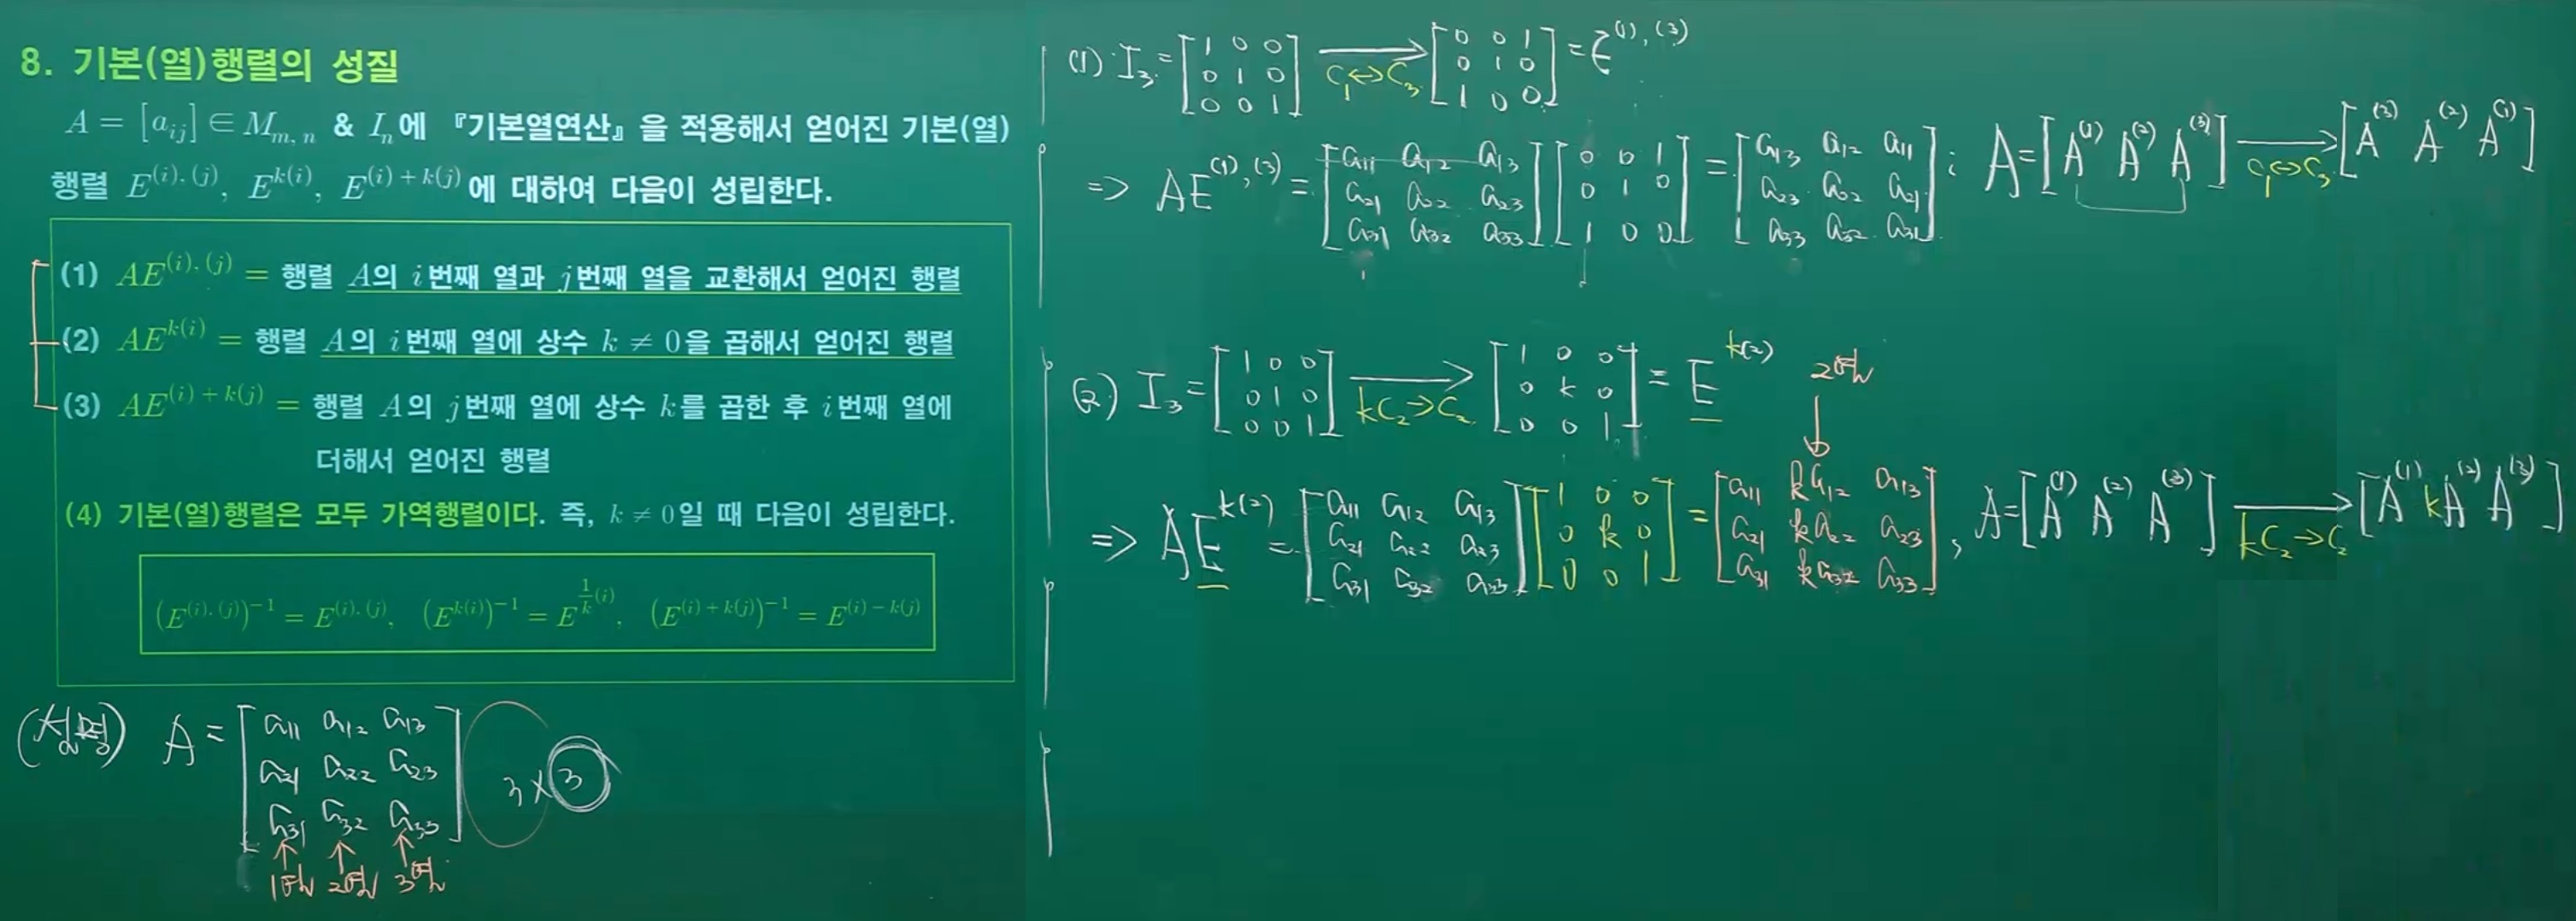 8. 기본(열)행렬의 성질
A = [a_{ij}] ∈ M_{m, n} & I_n에 『기본열연산』을 적용해서 얻어진 기본(열)
행렬 E^{(i), (j)}, E^{k(i)}, E^{(i)+k(j)}에 대하여 다음이 성립한다.
(1) AE^{(i), (j)} = 행렬 A의 i번째 열과 j번째 열을 교환해서 얻어진 행렬
(2) AE^{k(i)} = 행렬 A의 i번째 열에 상수 k ≠ 0을 곱해서 얻어진 행렬
(3) AE^{(i)+k(j)} = 행렬 A의 j번째 열에 상수 k를 곱한 후 i번째 열에
더해서 얻어진 행렬
(4) 기본(열)행렬은 모두 가역행렬이다. 즉, k ≠ 0일 때 다음이 성립한다.
(E^{(i), (j)})^{-1} = E^{(i), (j)}, (E^{k(i)})^{-1} = E^{\frac{1}{k}(i)}, (E^{(i)+k(j)})^{-1} = E^{(i)-k(j)}
(설명) A = [a11 a12 a13
a21 a22 a23
a31 a32 a33] 3×3
↑ ↑ ↑
1열 2열 3열
(1) I_3 = [1 0 0
0 1 0
0 0 1] → C_1↔C_3 [0 0 1
0 1 0
1 0 0] = E^{(1), (3)}
⇒ AE^{(1), (3)} = [a11 a12 a13
a21 a22 a23
a31 a32 a33] [0 0 1
0 1 0
1 0 0] = [a13 a12 a11
a23 a22 a21
a33 a32 a31] ; A = [A^{(1)} A^{(2)} A^{(3)}] → C_1↔C_3 [A^{(3)} A^{(2)} A^{(1)}]
(2) I_3 = [1 0 0
0 1 0
0 0 1] → kC_2→C_2 [1 0 0
0 k 0
0 0 1] = E^{k(2)}
2열
↓
⇒ AE^{k(2)} = [a11 a12 a13
a21 a22 a23
a31 a32 a33] [1 0 0
0 k 0
0 0 1] = [a11 ka12 a13
a21 ka22 a23
a31 ka32 a33] , A = [A^{(1)} A^{(2)} A^{(3)}] → kC_2→C_2 [A^{(1)} kA^{(2)} A^{(3)}]